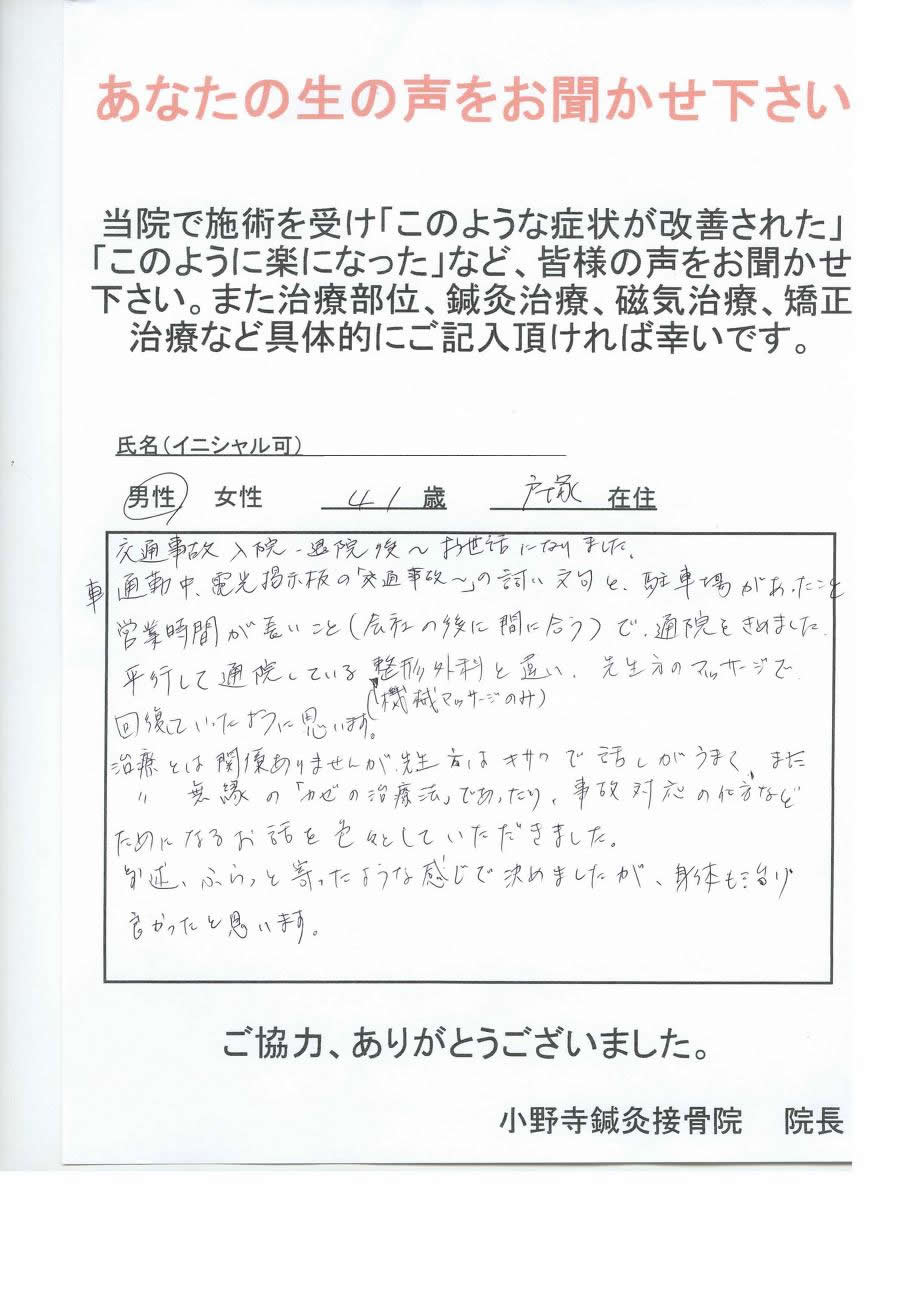 あなたの生の声をお聞かせ下さい
当院で施術を受け「このような症状が改善された」
「このように楽になった」など、皆様の声をお聞かせ
下さい。また治療部位、鍼灸治療、磁気治療、矯正
治療など具体的にご記入頂ければ幸いです。
氏名(イニシャル可)
男性 女性 41歳 戸塚 在住
交通事故入院-退院後〜お世話になりました。
車通勤中、電光掲示板の「交通事故〜」の 文句と、駐車場があったこと
営業時間が長いこと(会社の後に間に合う)で、通院をきめました。
平行して通院している整形外科と違い、先生方のマッサージで
(機械マッサージのみ)
回復していったように思います。
治療とは関係ありませんが、先生方はキサクで話しがうまく、また
〃 無縁の「カゼの治療法」であったり、事故対応の仕方など
ためになるお話を色々としていただきました。
ふらっと寄ったような感じで決めましたが、身体も治り
良かったと思います。
ご協力、ありがとうございました。
小野寺鍼灸接骨院 院長